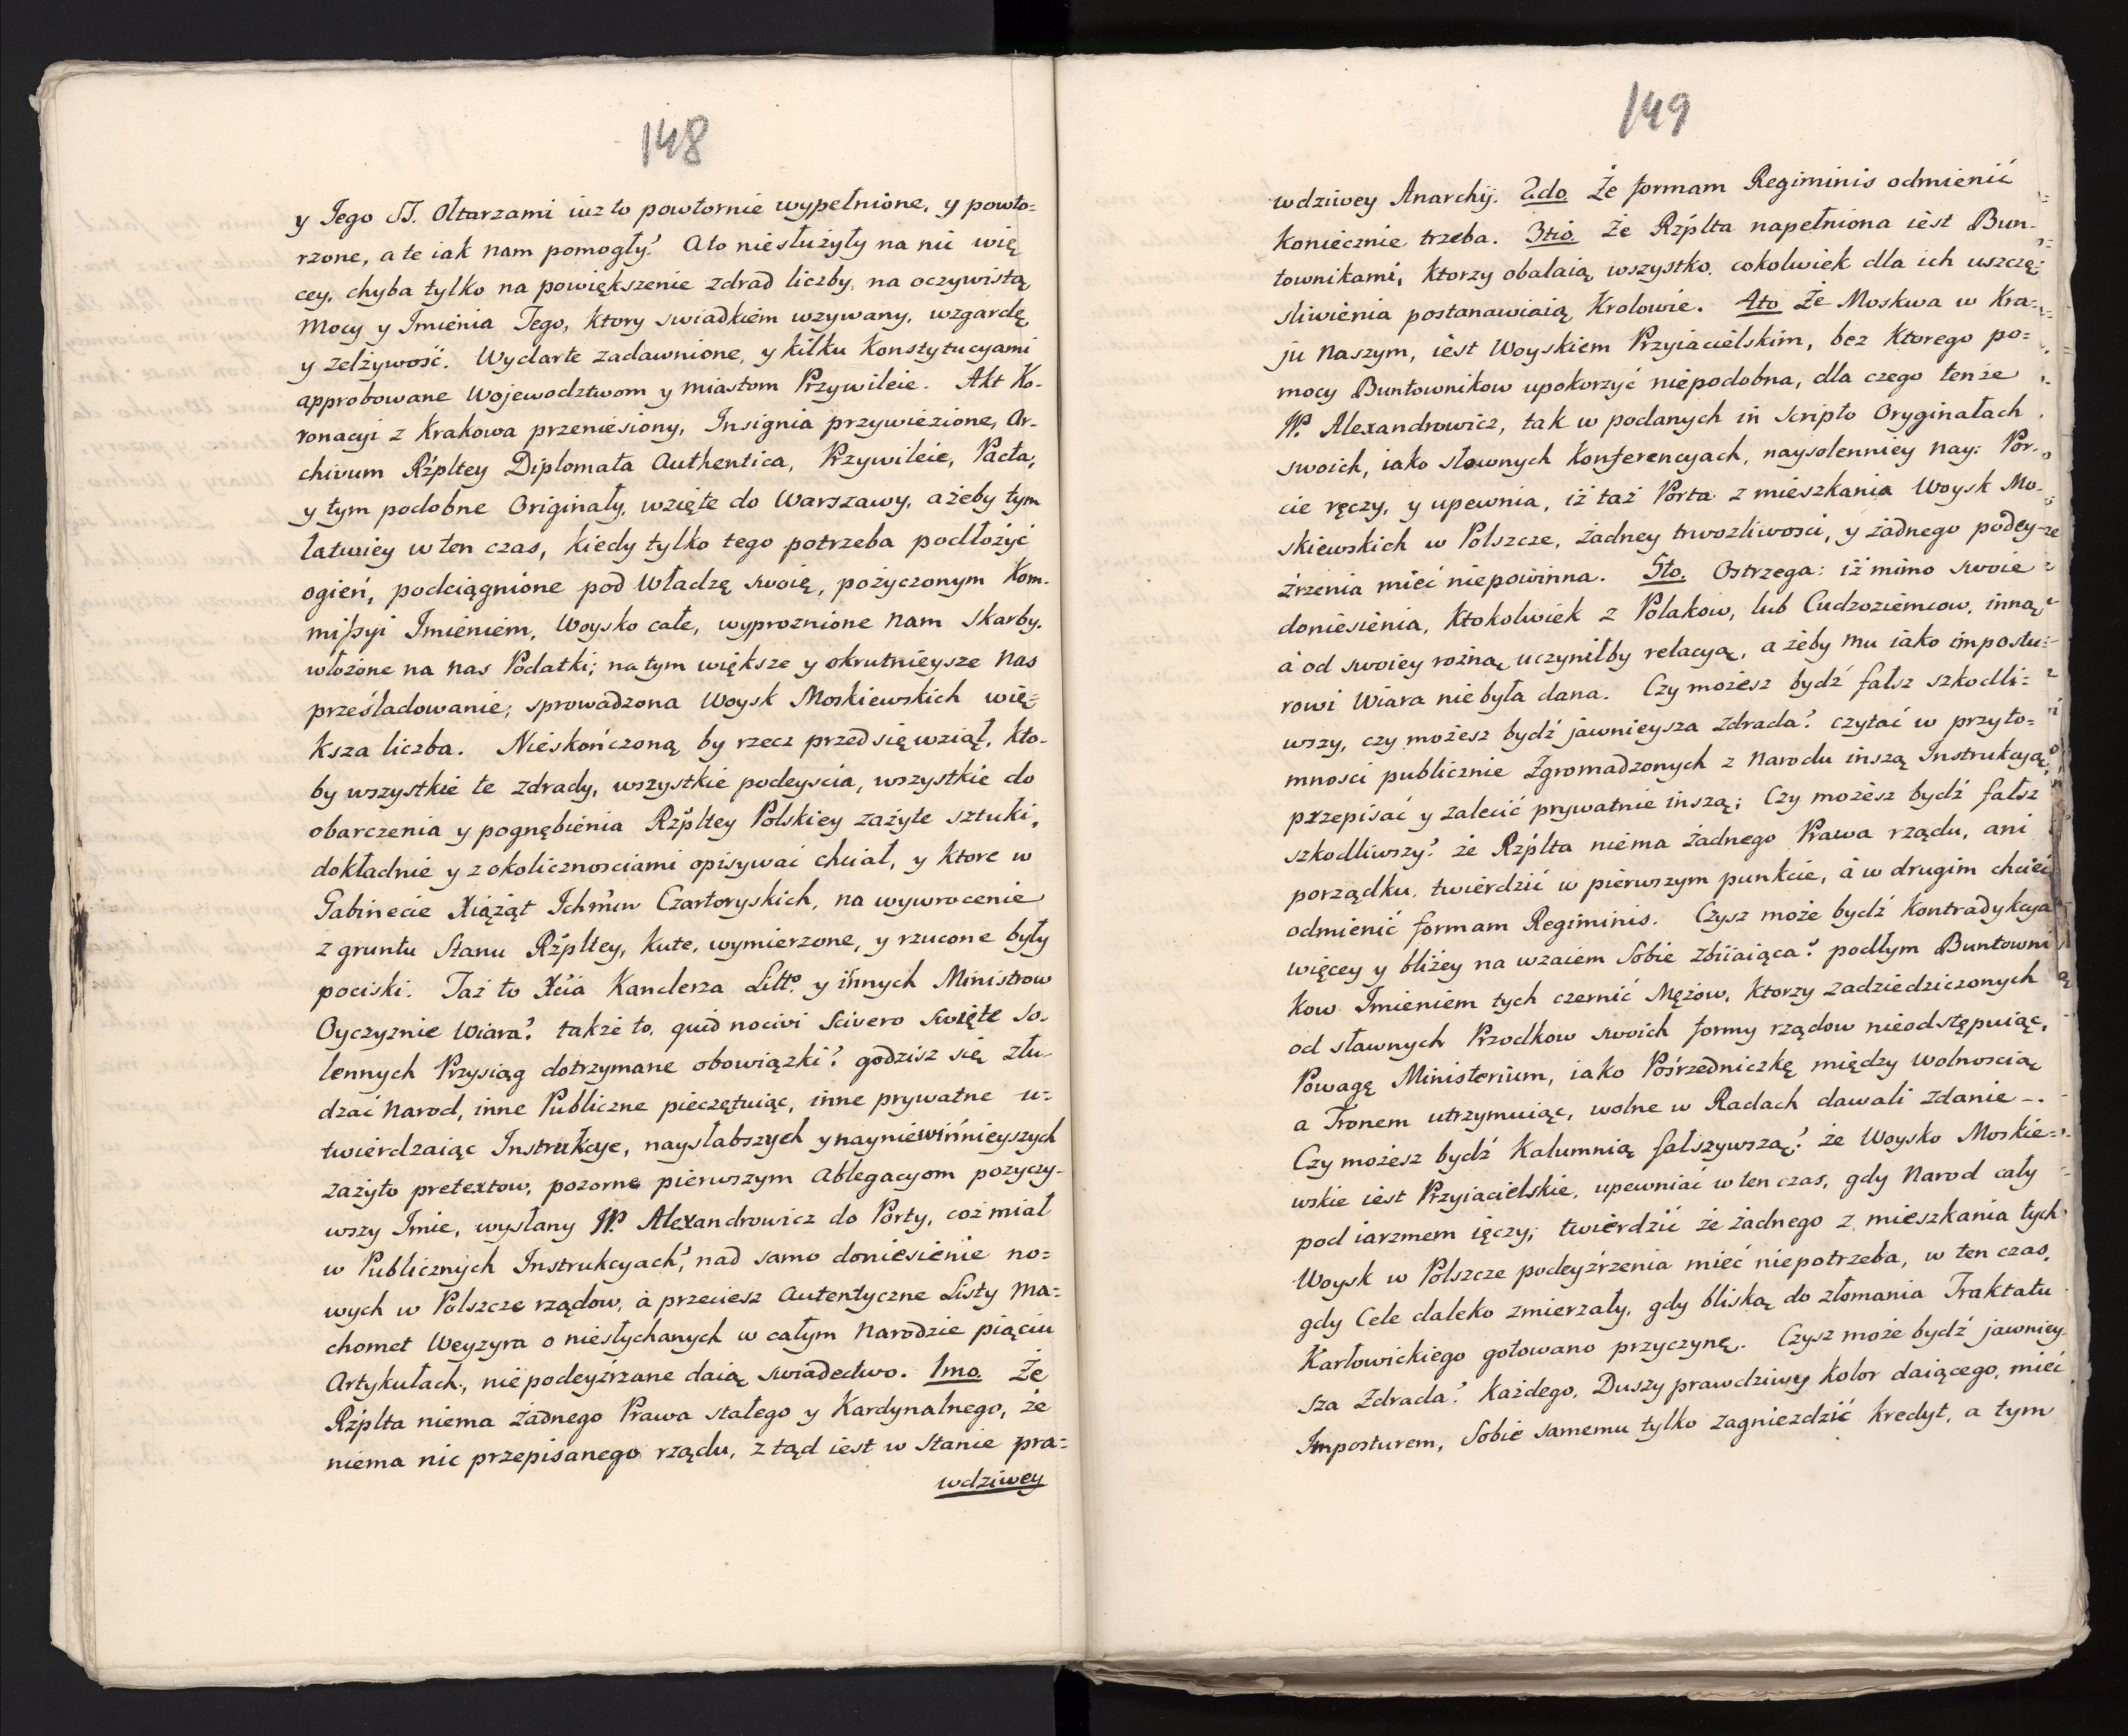 148
y Jego SS. Ołtarzami iuz to powtornie wypełnione, y powto=
rzone, a te iak nam pomogły? A to niesłużyły na nic wię
cey, chyba tylko na powiększenie zdrad liczby, na oczywistą
Mocy y Jmienia Tego, ktory swiadkiem wzywany, wzgardę
y zelżywość. Wydarte zadawnione, y kilku Konstytucyami
approbowane Wojewodztwom y miastom Przywileie. Akt Ko-
ronacyi z Krakowa przeniesiony, Insignia przywiezione, Ar-
chivum Rżpltey Diplomata Authentica, Przywileie, Pacta,
y tym podobne Originały, wzięte do Warszawy, ażeby tym
łatwiey w ten czas, kiedy tylko tego potrzeba podłożyć
ogień, podciągnione pod Władzę swoię, pożyczonym Kom-
missyi Jmieniem, Woysko całe, wyproznione nam Skarby.
włożone na nas Podatki; na tym większe y okrutnieysze nas
prześladowanie; sprowadzona Woysk Moskiewskich wię=
ksza liczba. Nieskończoną by rzecz przed się wziął, kto-
by wszystkie te zdrady, wszystkie podeyscia, wszystkie do
obarczenia y pognębienia Rżpltey Polskiey zażyte sztuki,
dokładnie y z okolicznosciami opisywać chciał, y ktore w
Gabinecie Xiążąt Jchmćiw Czartoryskich, na wywrocenie
z gruntu Stanu Rżpltey, kute, wymierzone, y rzucone były
pociski. Taż to Xcia Kanclerza Litto. y innych Ministrow
Oyczyznie Wiara? także to, quid nocivi Scivero Swięte So-
lennych Przysiąg dotrzymane obowiązki? godzisz się złu-
dzać Narod, inne Publiczne pieczętuiąc, inne prywatne u=
twierdzaiąc Instrukcye, naysłabszych y nayniewinnieyszych
zażyto pretextow, pozorne pierwszym Ablegacyom pozyczy-
wszy Jmie, wysłany JP. Alexandrowicz do Porty, coż miał
w Publicznych Instrukcyach? nad samo doniesienie no=
wych w Polszcze rządow, à przeciesz Autentyczne Listy Ma=
chomet Weyzyra o niesłychanych w całym Narodzie piąciu
Artykułach, niepodeyźrzane daią swiadectwo. 1mo. Że
Rżplta niema żadnego Prawa stałego y Kardynalnego, że
niema nic przepisanego rządu, z tąd iest w Stanie pra=
wdziwey
149
wdziwey Anarchij. 2do. Że formam Regiminis odmienić
koniecznie trzeba. 3tio. Że Rżplta napełniona iest Bun-
townikami, ktorzy obalaią wszystko, cokolwiek dla ich uszczę=
sliwienia postanawiaią Krolowie. 4to Że Moskwa w Kra=
ju Naszym, iest Woyskiem Przyiacielskim, bez ktorego po=
mocy Buntownikow upokorzyć niepodobna, dla czego tenze
JP. Alexandrowicz, tak w podanych in Scripto Oryginałach
swoich, iako słownych Konferencyach, naysolenniey nay: Por-
cie ręczy, y upewnia, iż taż Porta z mieszkania Woysk Mo-
skiewskich w Polszcze, żadney trwozliwosci, y żadnego podey-
źrzenia mieć niepowinna. 5to. Ostrzega: iż mimo swoie
doniesienia, ktokolwiek z Polakow, lub Cudzoziemcow, inną
à od swoiey rożną uczyniłby relacyą, a żeby mu iako impostu=
rowi Wiara nie była dana. Czy możesz bydź fałsz szkodli=
wszy, czy możesz bydź jawnieysza zdrada? czytać w przyto=
mnosci publicznie zgromadzonych z Narodu inszą Instrukcyą,
przepisać y zalecić prywatnie inszą; Czy możesz bydź fałsz
szkodliwszy? że Rżplta niema żadnego Prawa rządu, ani
porządku, twierdzić w pierwszym punkcie, à w drugim chcieć
odmienić formam Regiminis. Czysz może bydź kontradykcya
więcey y bliżey na wzaiem Sobie zbiiaiąca? podłym Buntowni
kow Jmieniem tych czernić Mężow, ktorzy zadziedziczonych
od sławnych Przodkow swoich formy rządow nieodstępuiąc,
Powagę Ministerium, iako Pośrzedniczkę między Wolnoscią
a Tronem utrzymuiąc, wolne w Radach dawali zdanie -.
Czy możesz bydź Kalumnią fałszywszą? że Woysko Moskie=
wskie iest Przyiacielskie, upewniać w ten czas, gdy Narod cały
pod iarzmem ięczy; twierdzić że żadnego z mieszkania tych
Woysk w Polszcze podeyźrzenia mieć niepotrzeba, w ten czas,
gdy Cele daleko zmierzały, gdy bliską do złomania Traktatu
Karłowickiego gotowano przyczynę. Czysz może bydź jawniey-
sza zdrada? Każdego, Duszy prawdziwy kolor daiącego, mieć
Imposturem, Sobie samemu tylko zagniezdzić kredyt, a tym